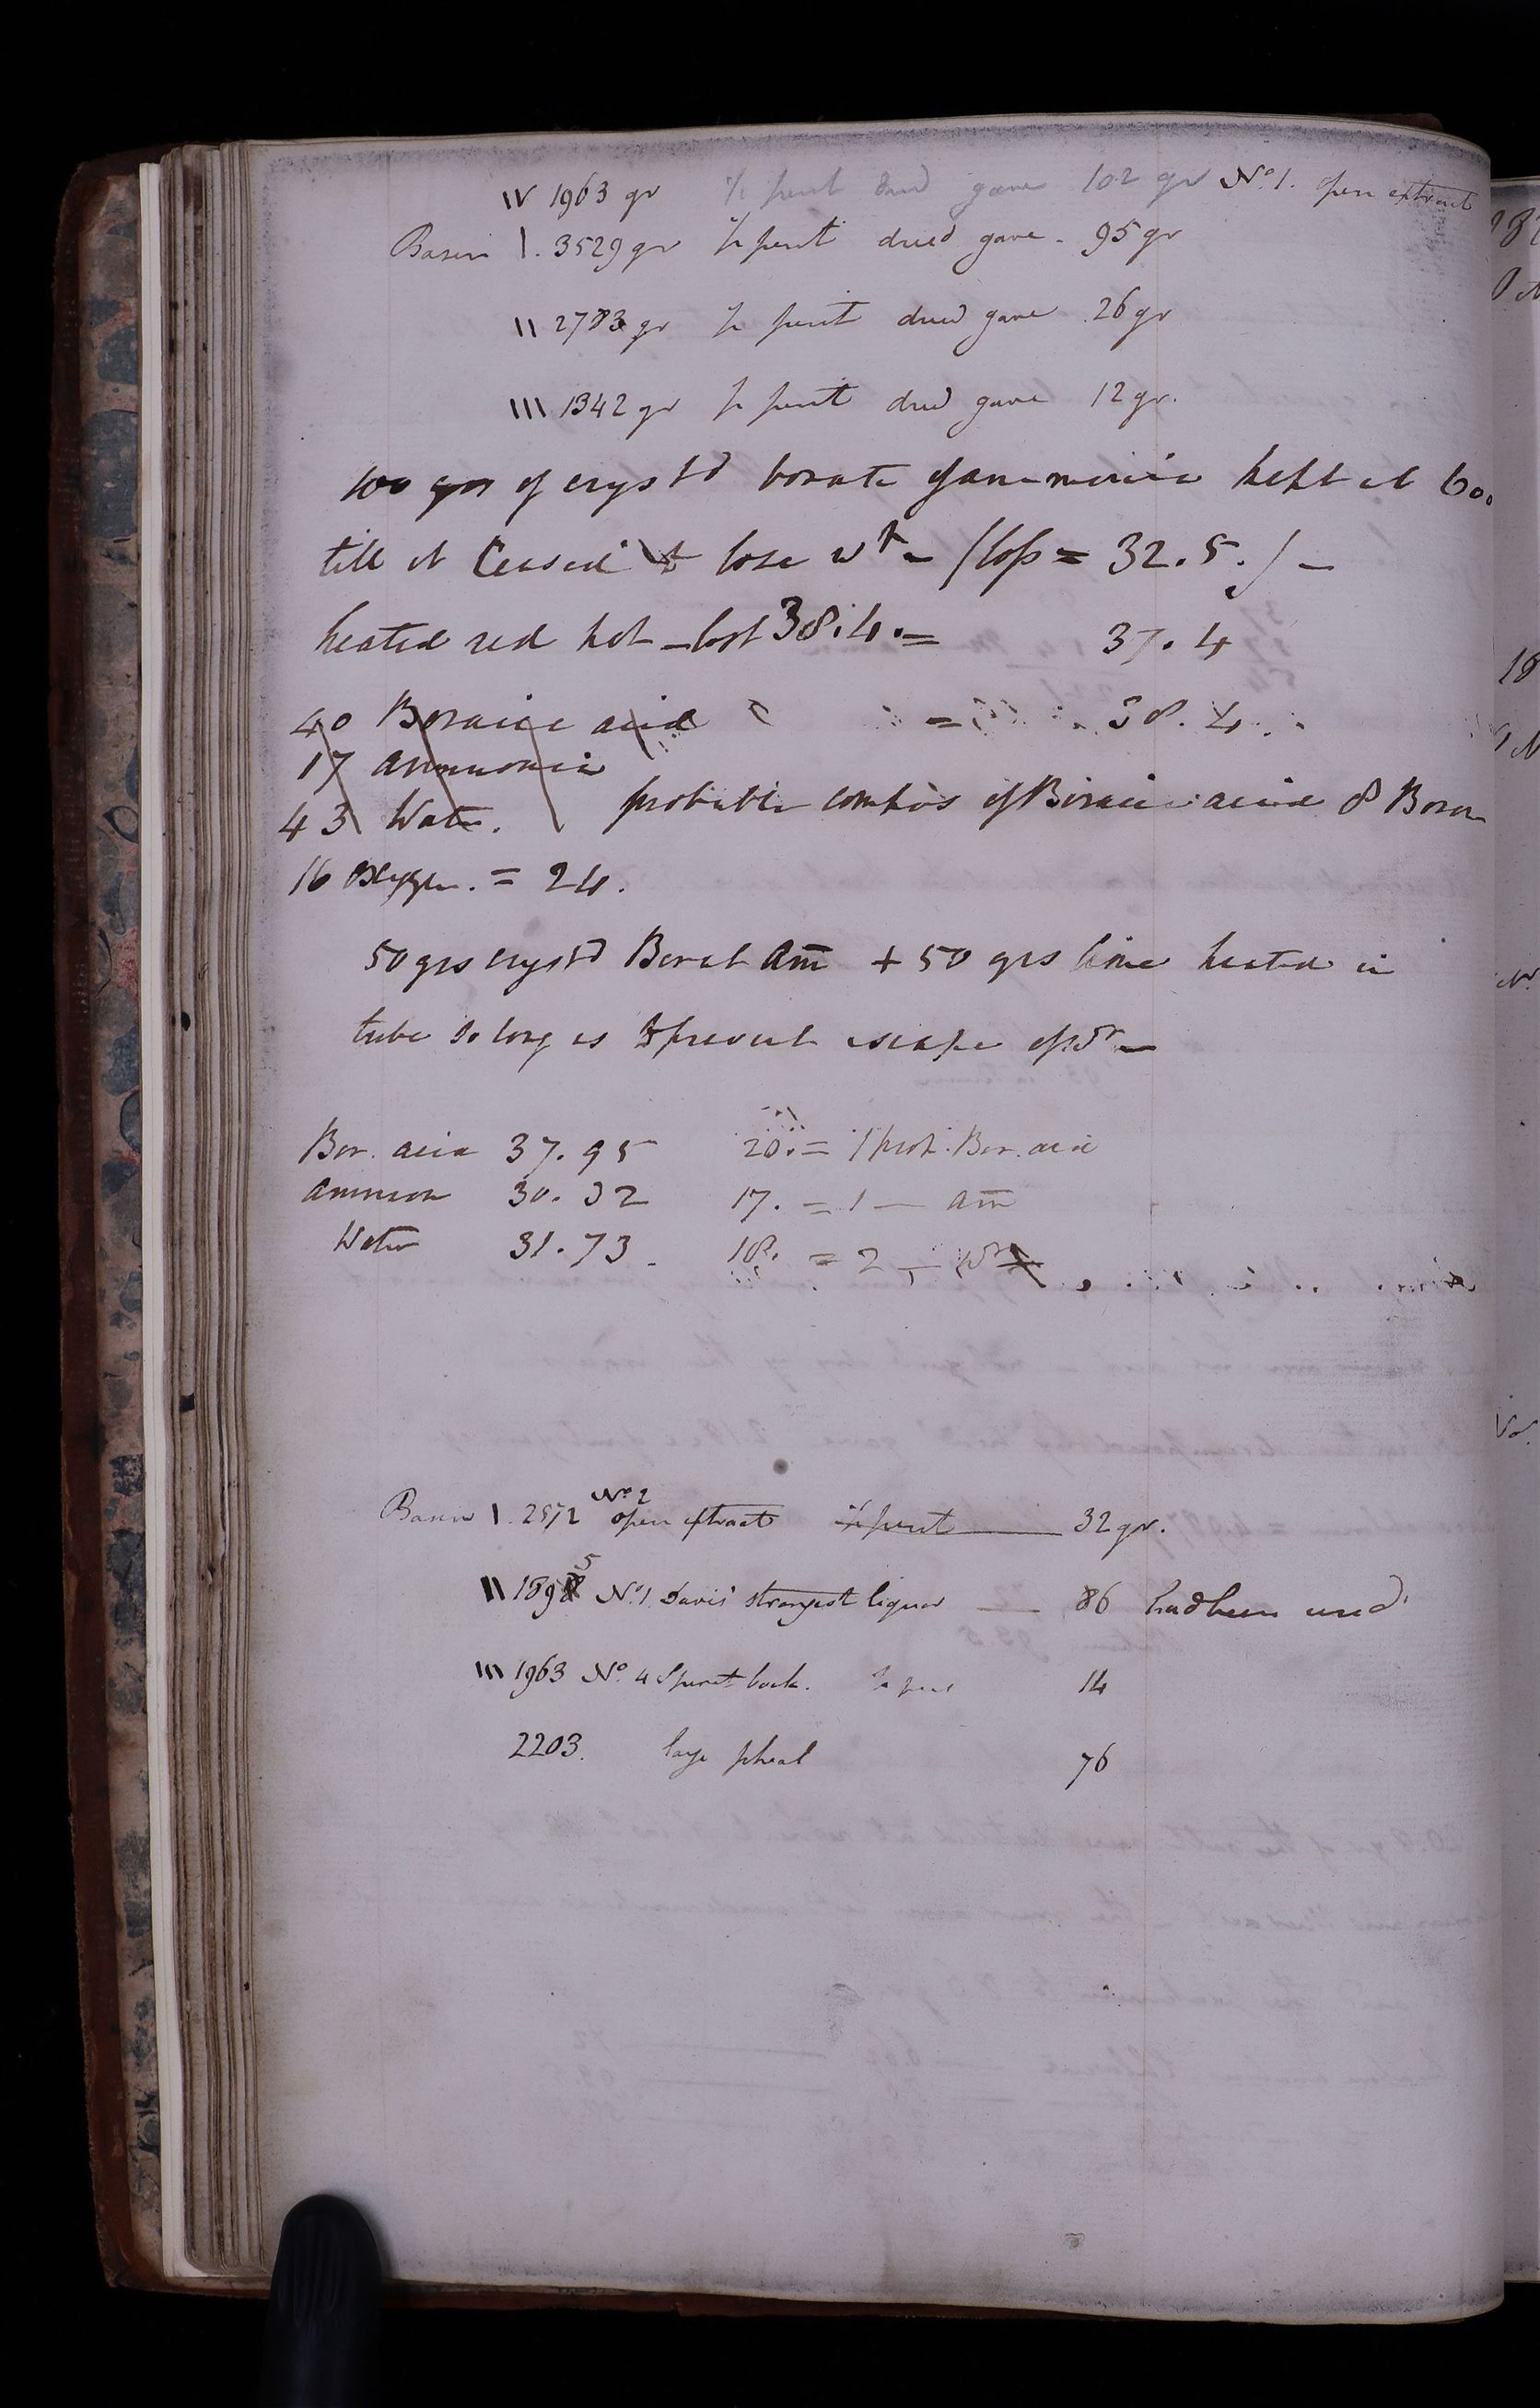 IV 1963 gr ½ pint dried gave 102 gr No. 1. open extract
Basin I. 3529 gr ½ pint dried gave - 95 gr
II 2783 gr ½ pint dried gave 26 gr
III 1342 gr ½ pint dried gave 12 gr.
100 grs of crystd borate of ammonia kept at 600
till it ceased to lose wt - (loss = 32.5.) -
heated red hot - lost 38.4. = 37.4
40 Boracic acid = 38.4.
17 ammonia
43 Water.
probable compos of Boracic acid 8 Boron
16 oxygen. = 24.
50 grs crystd Borat Am + 50 grs lime heated in
tube so long as to prevent escape of wr -
Bor. acid 37.95 20. = 1 prop. Bor. acid
ammon 30.32 17. = 1 — Am
Water 31.73. 18. = 2 — wr
Basin I. 2572 No 2 open extract ½ pint — 32 gr.
II 1895 No. 1 Davis' strongest liquor — 86 had been used
III 1963 No. 4 Spirit bark. ½ pint 14
2203. large phial 76